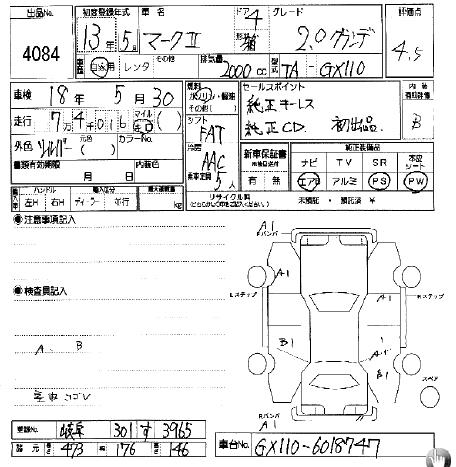 出品No. 初度登録年式 車名 ドア グレード 評価点
4084 13年 5月 マークⅡ 4 2.0グランデ 4.5
自家用 レンタ その他 排気量 2000cc 型式 TA-GX110
車検 18年 5月 30 燃料 ガソリン・軽油 セールスポイント 内装
その他( ) 純正キーレス B
走行 マイル シフト FAT 純正CD. 初出品.
外色 シルバー 元色( ) カラーNo. 冷房 AAC 新車保証書 純正装備品
書類有効期限 内装色 乗車定員 5人 ナビ TV SR 本革シート
月 日 有 無 エアB アルミ PS PW
ハンドル 輸入区分 最大積載量 リサイクル料
左H 右H ディーラー 並行 kg 未預託・預託済 ¥
◉注意事項記入
A1 Fバンパ
A1
Lステップ A1 Rステップ
◉検査員記入
B1
A. B
B1
スペア
Rバンパ
A1
登録No. 岐阜 301 す 3965
諸元 長 473 幅 176 高 146 車台No. GX110-6018747